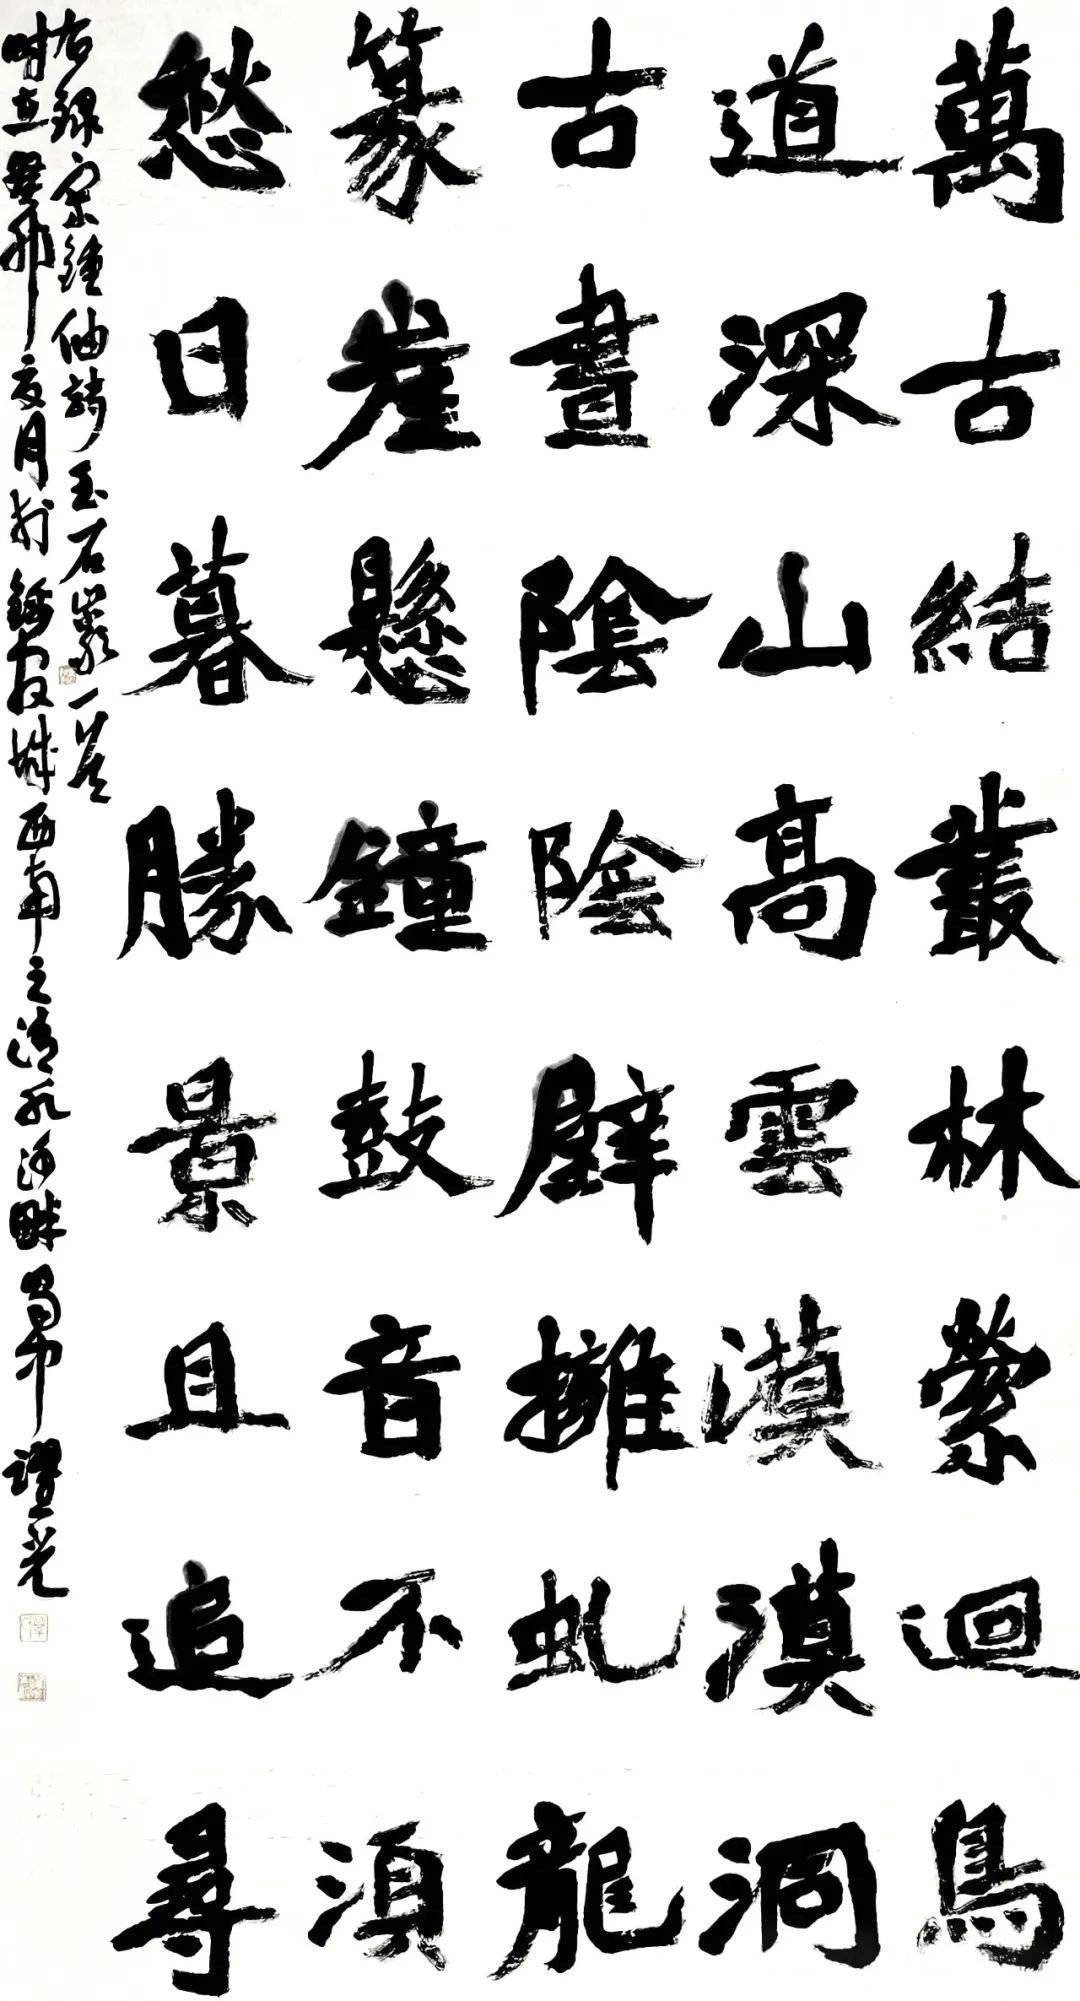 萬古結叢林縈迴鳥
道深山高雲漠漠洞
古晝陰陰壁擁虬龍
篆崖懸鐘鼓音不須
愁日暮勝景且追尋
右錄宋鍾仙詩玉石巖一首
時在癸卯夏月於錦官城西南之清水河畔蜀中譚光